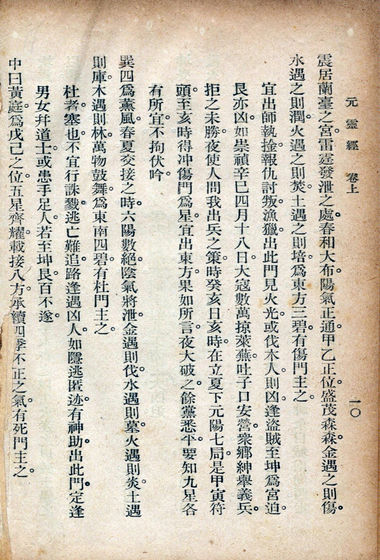 元靈經　卷上
一〇
震居蘭臺之宮雷霆發泄之處春和大布陽氣正通甲乙正位盛茂森森金遇之則傷
水遇之則潤火遇之則焚土遇之則培爲東方三碧有傷門主之
宜出師執捡報仇討叛漁獵出此門見火光或伐木人則凶逢盜賊至坤爲宮迫
艮亦凶如崇禎辛巳四月十八日大寇數萬掠萊蕪吐子口安營衆鄉紳舉義兵
拒之未勝夜使人問我出兵之策時癸亥日亥時在立夏下元陽七局是甲寅符
頭至亥時得冲傷門爲星宜出東方果如所言夜大破之餘黨悉平要知九星各
有所宜不拘伏吟
巽四爲薰風春夏交接之時六陽數絕陰氣將泄金遇則伐水遇則墓火遇則炎土遇
則庫木遇則林萬物鼓舞爲東南四碧有杜門主之
杜者塞也不宜行誅戮逃亡難追路逢遇凶人如隱逃匿迹有神助出此門定逢
男女幷道士或患手足人若至坤艮百不遂
中曰黃庭爲戊己之位五星齊耀載接八方承續四季不正之氣有死門主之